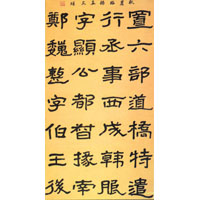 置六部道橋特遣
行丞事西成韓朖
字顯公都督掾南
鄭魏整字伯玉後